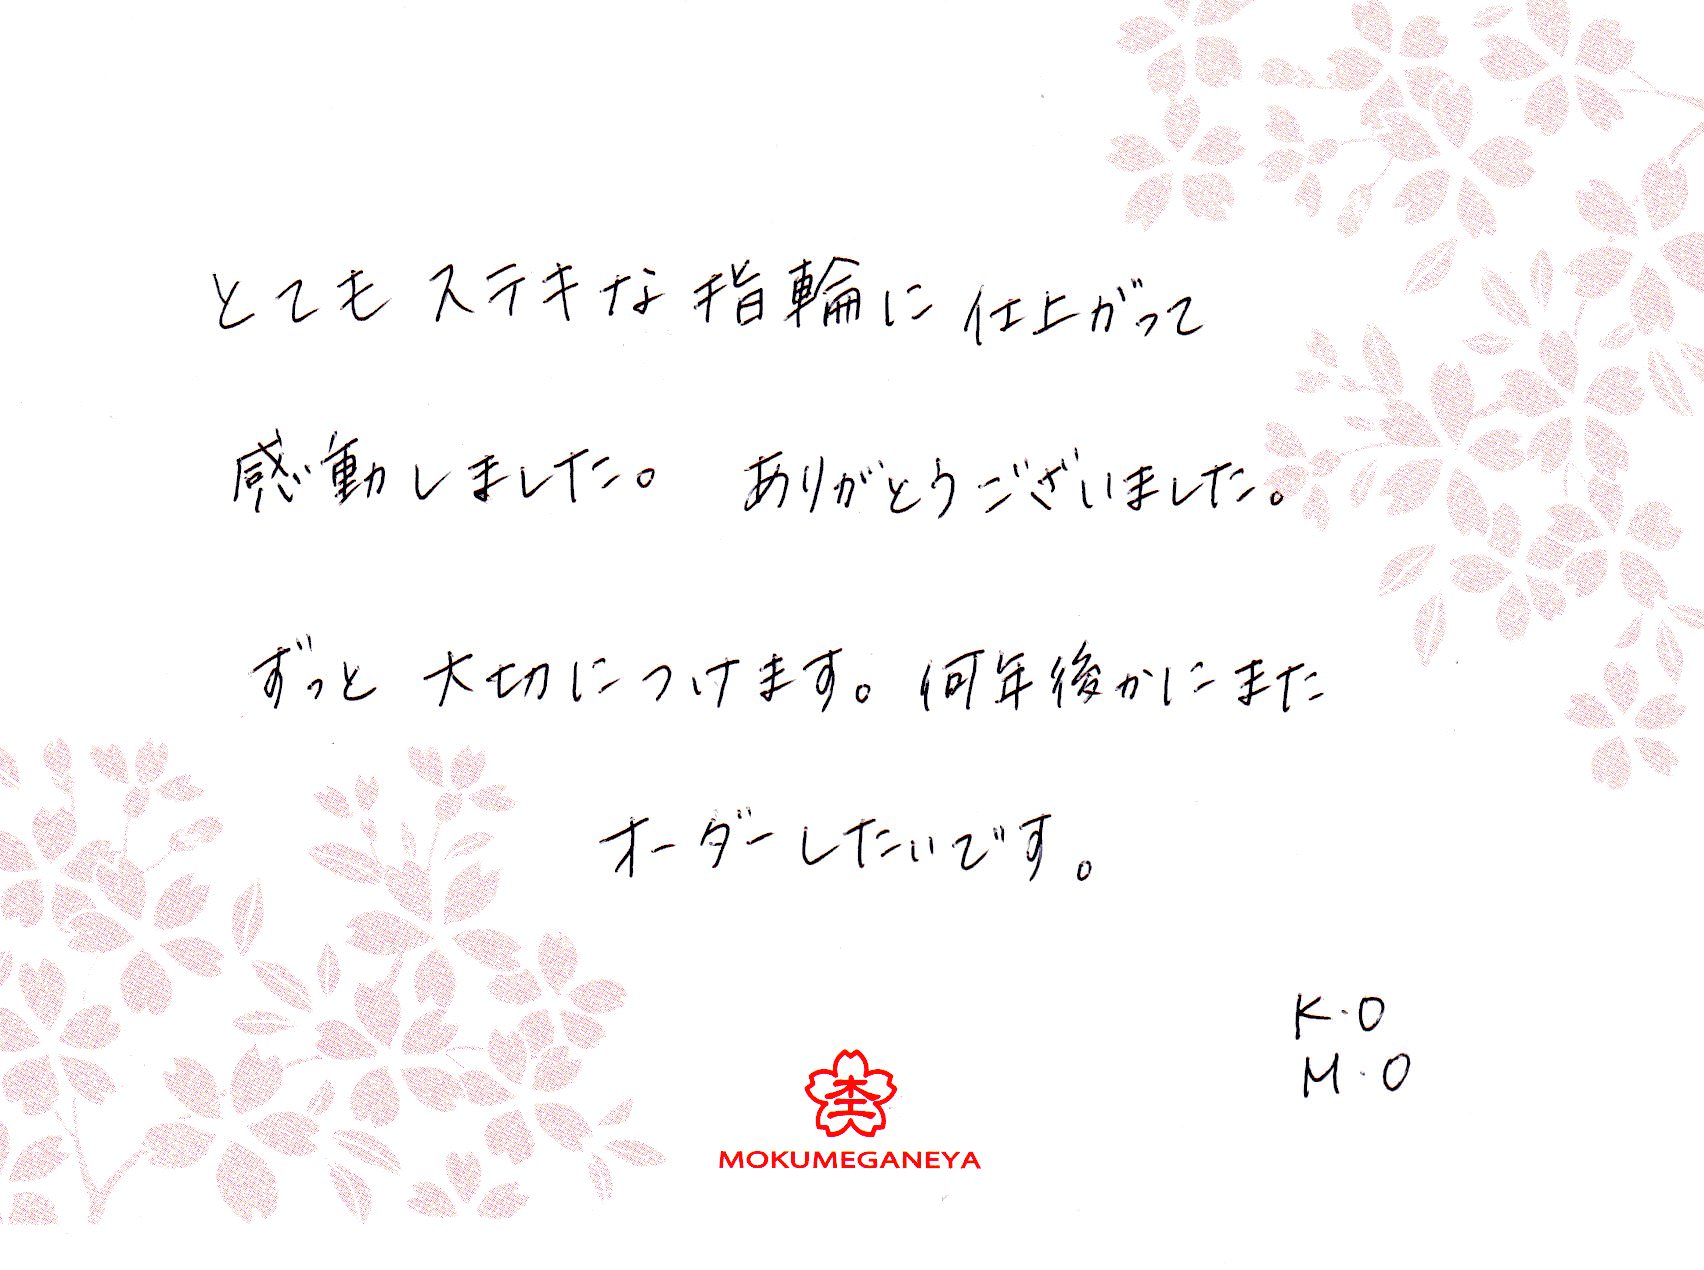 とてもステキな指輪に仕上がって
感動しました。 ありがとうございました。
ずっと大切につけます。何年後かにまた
オーダーしたいです。
K.O
M.O
MOKUMEGANEYA